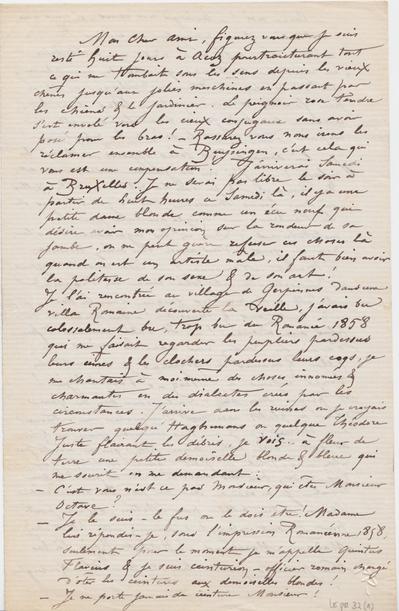 Mon cher ami, figurez vous que je suis
resté huit jours à Acoz pourtraicturant tout
ce qui me tombait sous les sens depuis les vieux
chênes jusqu'aux jolies meschines en passant par
les chiens & le jardinier. Le peignoir rose tendre
s'est envolé vers les cieux conjugaux sans avoir
posé pour les bras ! – Rassurez vous nous irons les
réclamer ensemble à c'est cela qui
vous est une compensation. J'arriverai Samedi
à Bruxelles. Je ne serai pas libre le soir à
partir de huit heures ce Samedi là, il y a une
petite dame blonde comme un écu neuf qui
désire avoir mon opinion sur la rondeur de sa
jambe, on ne peut guère refuser ces choses là
quand on est un artiste mâle, il faut bien avoir
la politesse de son sexe & de son art !
Je l'ai rencontrée au village de Gerpinnes dans une
villa Romaine découverte la veille, j'avais bu
colossalement bu, trop bu du Romanée 1858
qui me faisait regarder les peupliers pardessus
leurs cimes & les clochers pardessus leurs coqs, je
me chantais à moi-même des choses innomées &
charmantes en des dialectes créés par les
circonstances. J'arrive dans les ruines où je croyais
trouver quelque ou quelque Théodore
Juste flairant les débris, je vois à fleur de
terre une petite demoiselle blonde & bleue qui
me sourit en me demandant :
– C'est vous n'est ce pas Monsieur, qui êtes Monsieur
Octave ?
– Je le suis – le fus ou le dois être ! Madame
lui répondis-je, sous l'impression Romanéenne 1858,
seulement pour le moment je m'appelle Quintus
Flavius & je suis centurion – officier romain chargé
d'ôter les ceintures aux demoiselles blondes !
– Je ne porte jamais de ceinture Monsieur !